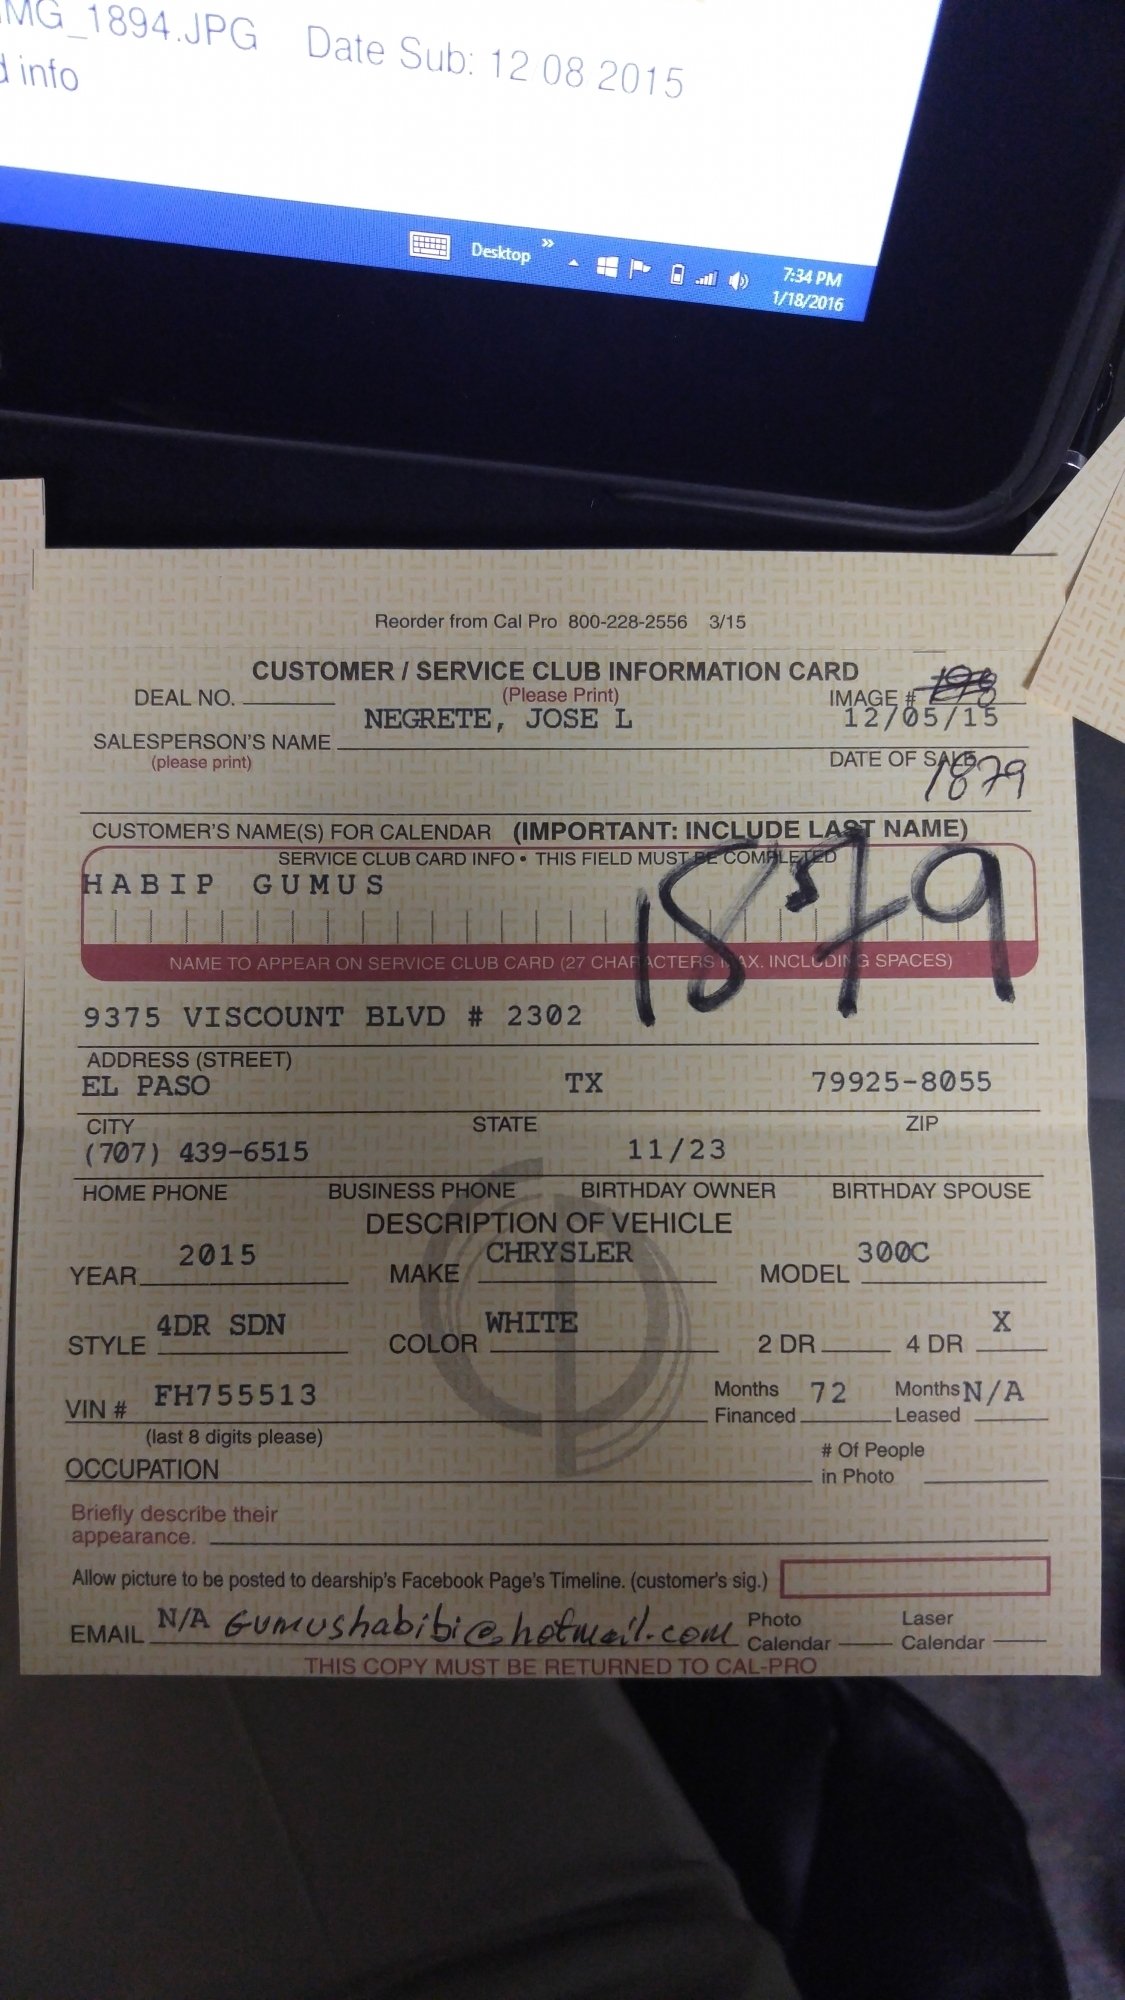 MG_1894.JPG Date Sub: 12 08 2015
d info
Desktop
7:34 PM
1/18/2016
Reorder from Cal Pro 800-228-2556 3/15
CUSTOMER / SERVICE CLUB INFORMATION CARD
DEAL NO. (Please Print) IMAGE #
NEGRETE, JOSE L 12/05/15
SALESPERSON'S NAME
(please print) DATE OF SALE
1879
CUSTOMER'S NAME(S) FOR CALENDAR (IMPORTANT: INCLUDE LAST NAME)
SERVICE CLUB CARD INFO • THIS FIELD MUST BE COMPLETED
HABIP GUMUS
1879
NAME TO APPEAR ON SERVICE CLUB CARD (27 CHARACTERS MAX. INCLUDING SPACES)
9375 VISCOUNT BLVD # 2302
ADDRESS (STREET)
EL PASO TX 79925-8055
CITY STATE ZIP
(707) 439-6515 11/23
HOME PHONE BUSINESS PHONE BIRTHDAY OWNER BIRTHDAY SPOUSE
DESCRIPTION OF VEHICLE
YEAR 2015 MAKE CHRYSLER MODEL 300C
STYLE 4DR SDN COLOR WHITE 2 DR 4 DR X
VIN # FH755513 Months Financed 72 Months Leased N/A
(last 8 digits please)
OCCUPATION # Of People in Photo
Briefly describe their
appearance.
Allow picture to be posted to dearship's Facebook Page's Timeline. (customer's sig.)
EMAIL N/A Gumushabibi@hotmail.com Photo Calendar Laser Calendar
THIS COPY MUST BE RETURNED TO CAL-PRO